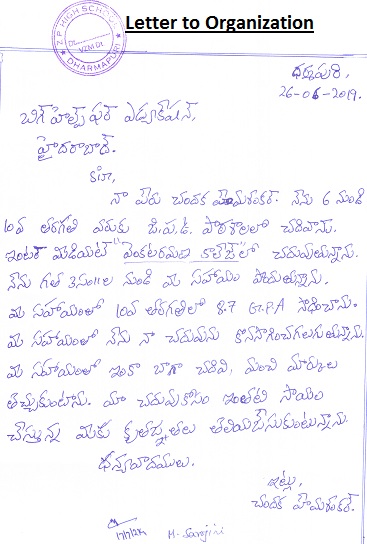 Letter to Organization
Z.P HIGH SCHOOL
Dt.
VZM Dt.
DHARMAPURI
ధర్మపురి,
26-06-2019.
బిగ్ హెల్ప్ ఫర్ ఎడ్యుకేషన్,
హైదరాబాద్.
Sir,
నా పేరు చందక హేమశంకర్. నేను 6 నుండి
10వ తరగతి వరకు జి.ప.ఉ. పాఠశాలలో చదివాను.
ఇంటర్ మీడియట్ "వెంకటరమణ కాలేజ్"లో చదువుతున్నాను.
నేను గత 3సం॥ల నుండి మీ సహాయం పొందుతున్నాను.
మీ సహాయంతో 10వ తరగతిలో 8.7 G.P.A సాధించాను.
మీ సహాయంతో నేను నా చదువును కొనసాగించగలుగుతున్నాను.
మీ సహాయంతో ఇంకా బాగా చదివి, మంచి మార్కులు
తెచ్చుకుంటాను. మా చదువుకోసం ఇంతటి సాయం
చేస్తున్న మీకు కృతజ్ఞతలు తెలియజేసుకుంటున్నాను.
ధన్యవాదములు.
ఇట్లు,
చందక హేమశంకర్.
M. Sarojini